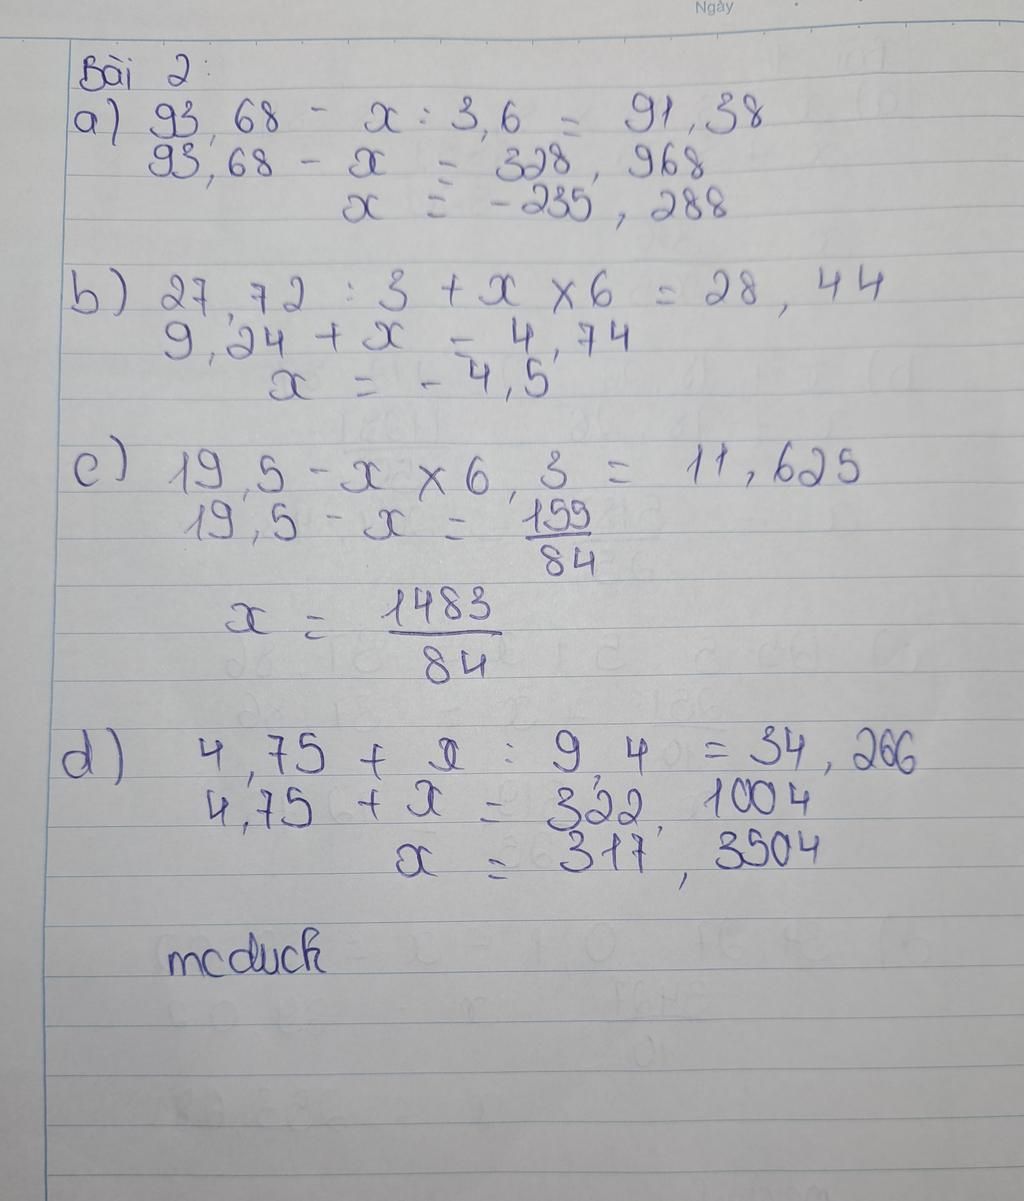 Ngày
Bài 2:
a) 93,68 - x : 3,6 = 91,38
93,68 - x = 328,968
x = -235,288
b) 27,72 : 3 + x × 6 = 28,44
9,24 + x = 4,74
x = -4,5
c) 19,5 - x × 6,3 = 11,625
19,5 - x = 155/84
x = 1483/84
d) 4,75 + x : 9,4 = 34,266
4,75 + x = 322,1004
x = 317,3504
mcduck